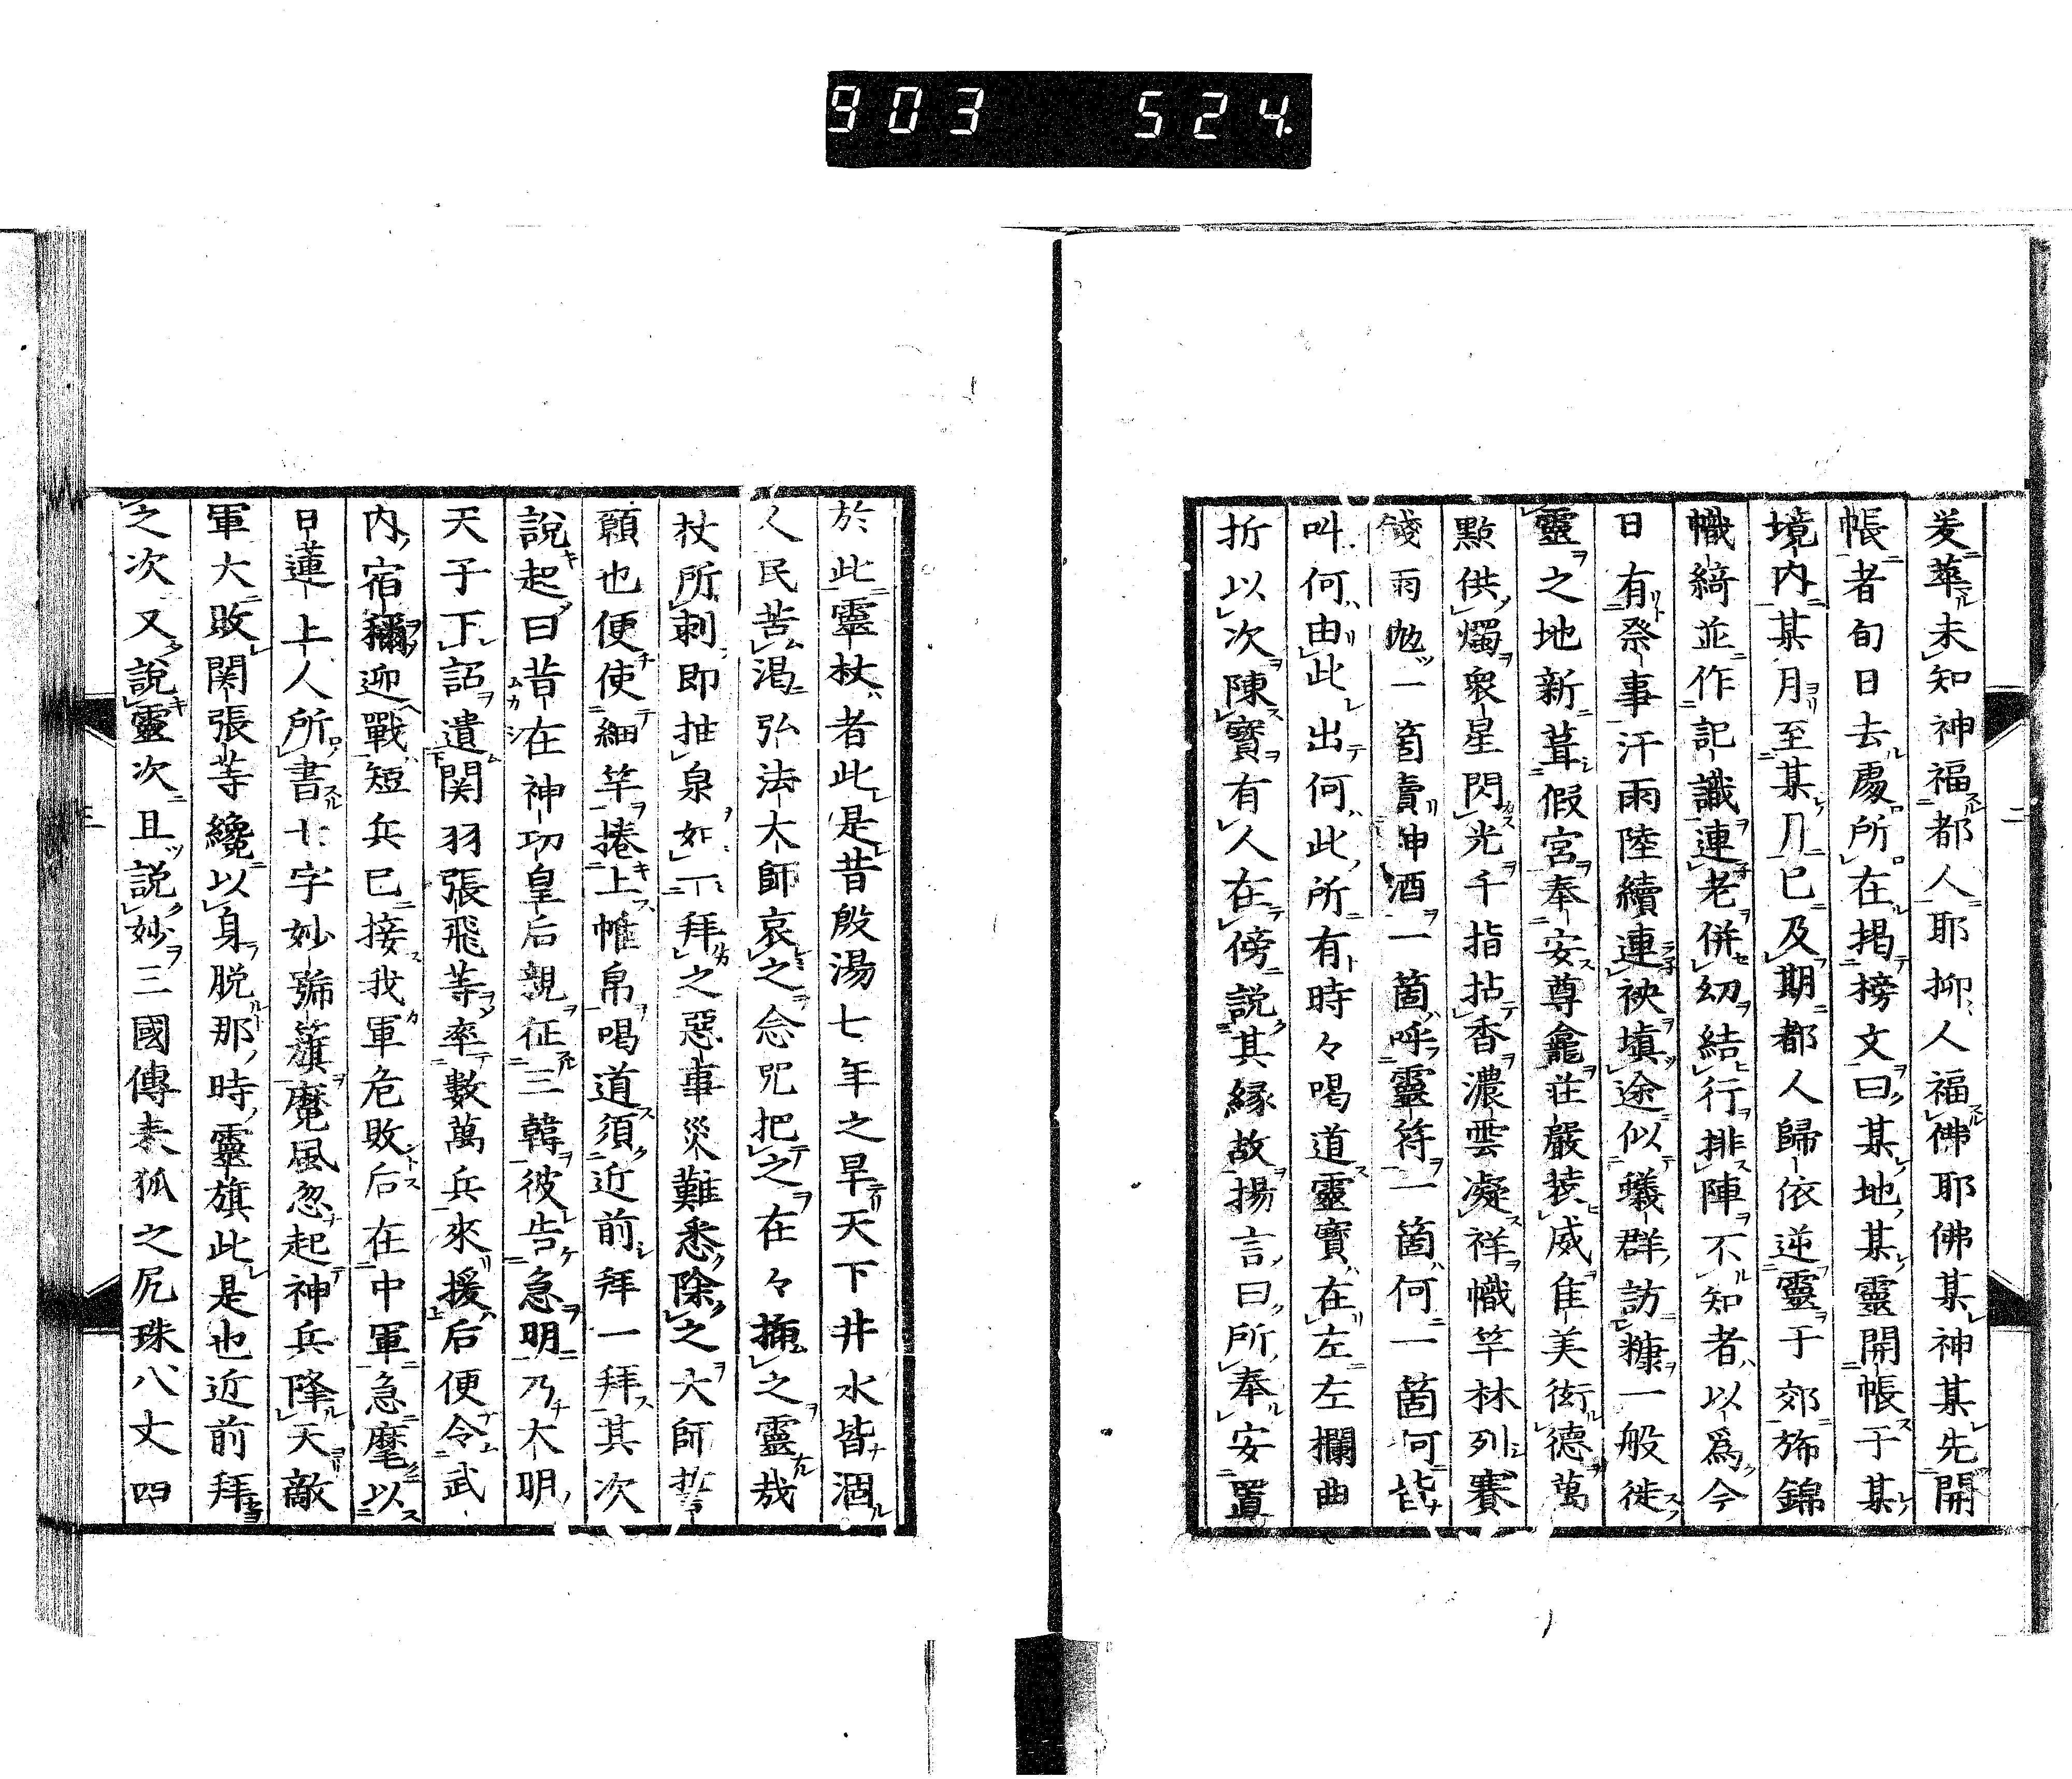 903 524
爰華未知神福都人耶抑人福佛耶佛某神某先開
帳者旬日去處所在揭榜文曰某地某靈開帳于某
境内某月至某月已及期都人歸依逆靈于郊旆錦
幟綺並作記識連老併幼結行排陣不知者以爲今
日有祭事汗雨陸續連袂填途似蟻群訪糠一般徙
靈之地新葺假宮奉安尊龕莊嚴裝威隹美衒德萬
點供燭衆星閃光千指拈香濃雲凝祥幟竿林列賽
錢雨一箇賣神酒一箇呼靈符一箇何一箇何皆
叫何由此出何此所有時々喝道靈寶在左左欄曲
折以次陳寶有人在傍說其緣故揚言曰所奉安置
於此靈杖者此是昔殷湯七年之旱天下井水皆涸
人民苦渴弘法大師哀之念咒把之在々插之靈哉
杖所刺即抽泉如一拜之惡事災難悉除之大師誓
願也便使細竿捲上帷帛喝道須近前拜一拜其次
說起曰昔在神功皇后親征三韓彼告急明乃大明
天子下詔遣関羽張飛等率數萬兵來援后便令武
内宿禰迎戰短兵已接我軍危敗后在中軍急麾以
日蓮上人所書七字妙號籏魔風忽起神兵降天敵
軍大敗関張等纔以身脱那時靈旗此是也近前拜
之次又說靈次且説妙三國傳来狐之尻珠八丈四
二
三